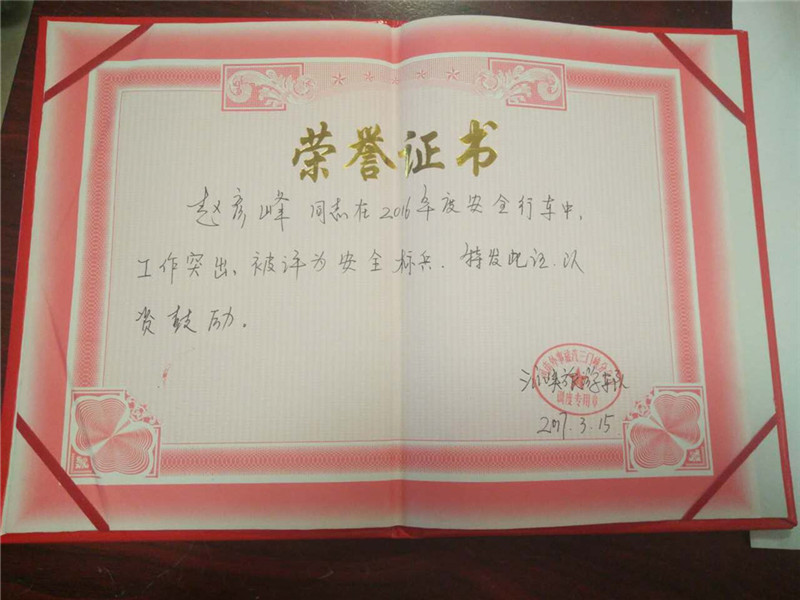 荣誉证书
赵彦峰 同志在2016年度安全行车中,
工作突出、被评为安全标兵.特发此证.以
资鼓励。
调度专用章
2017.3.15